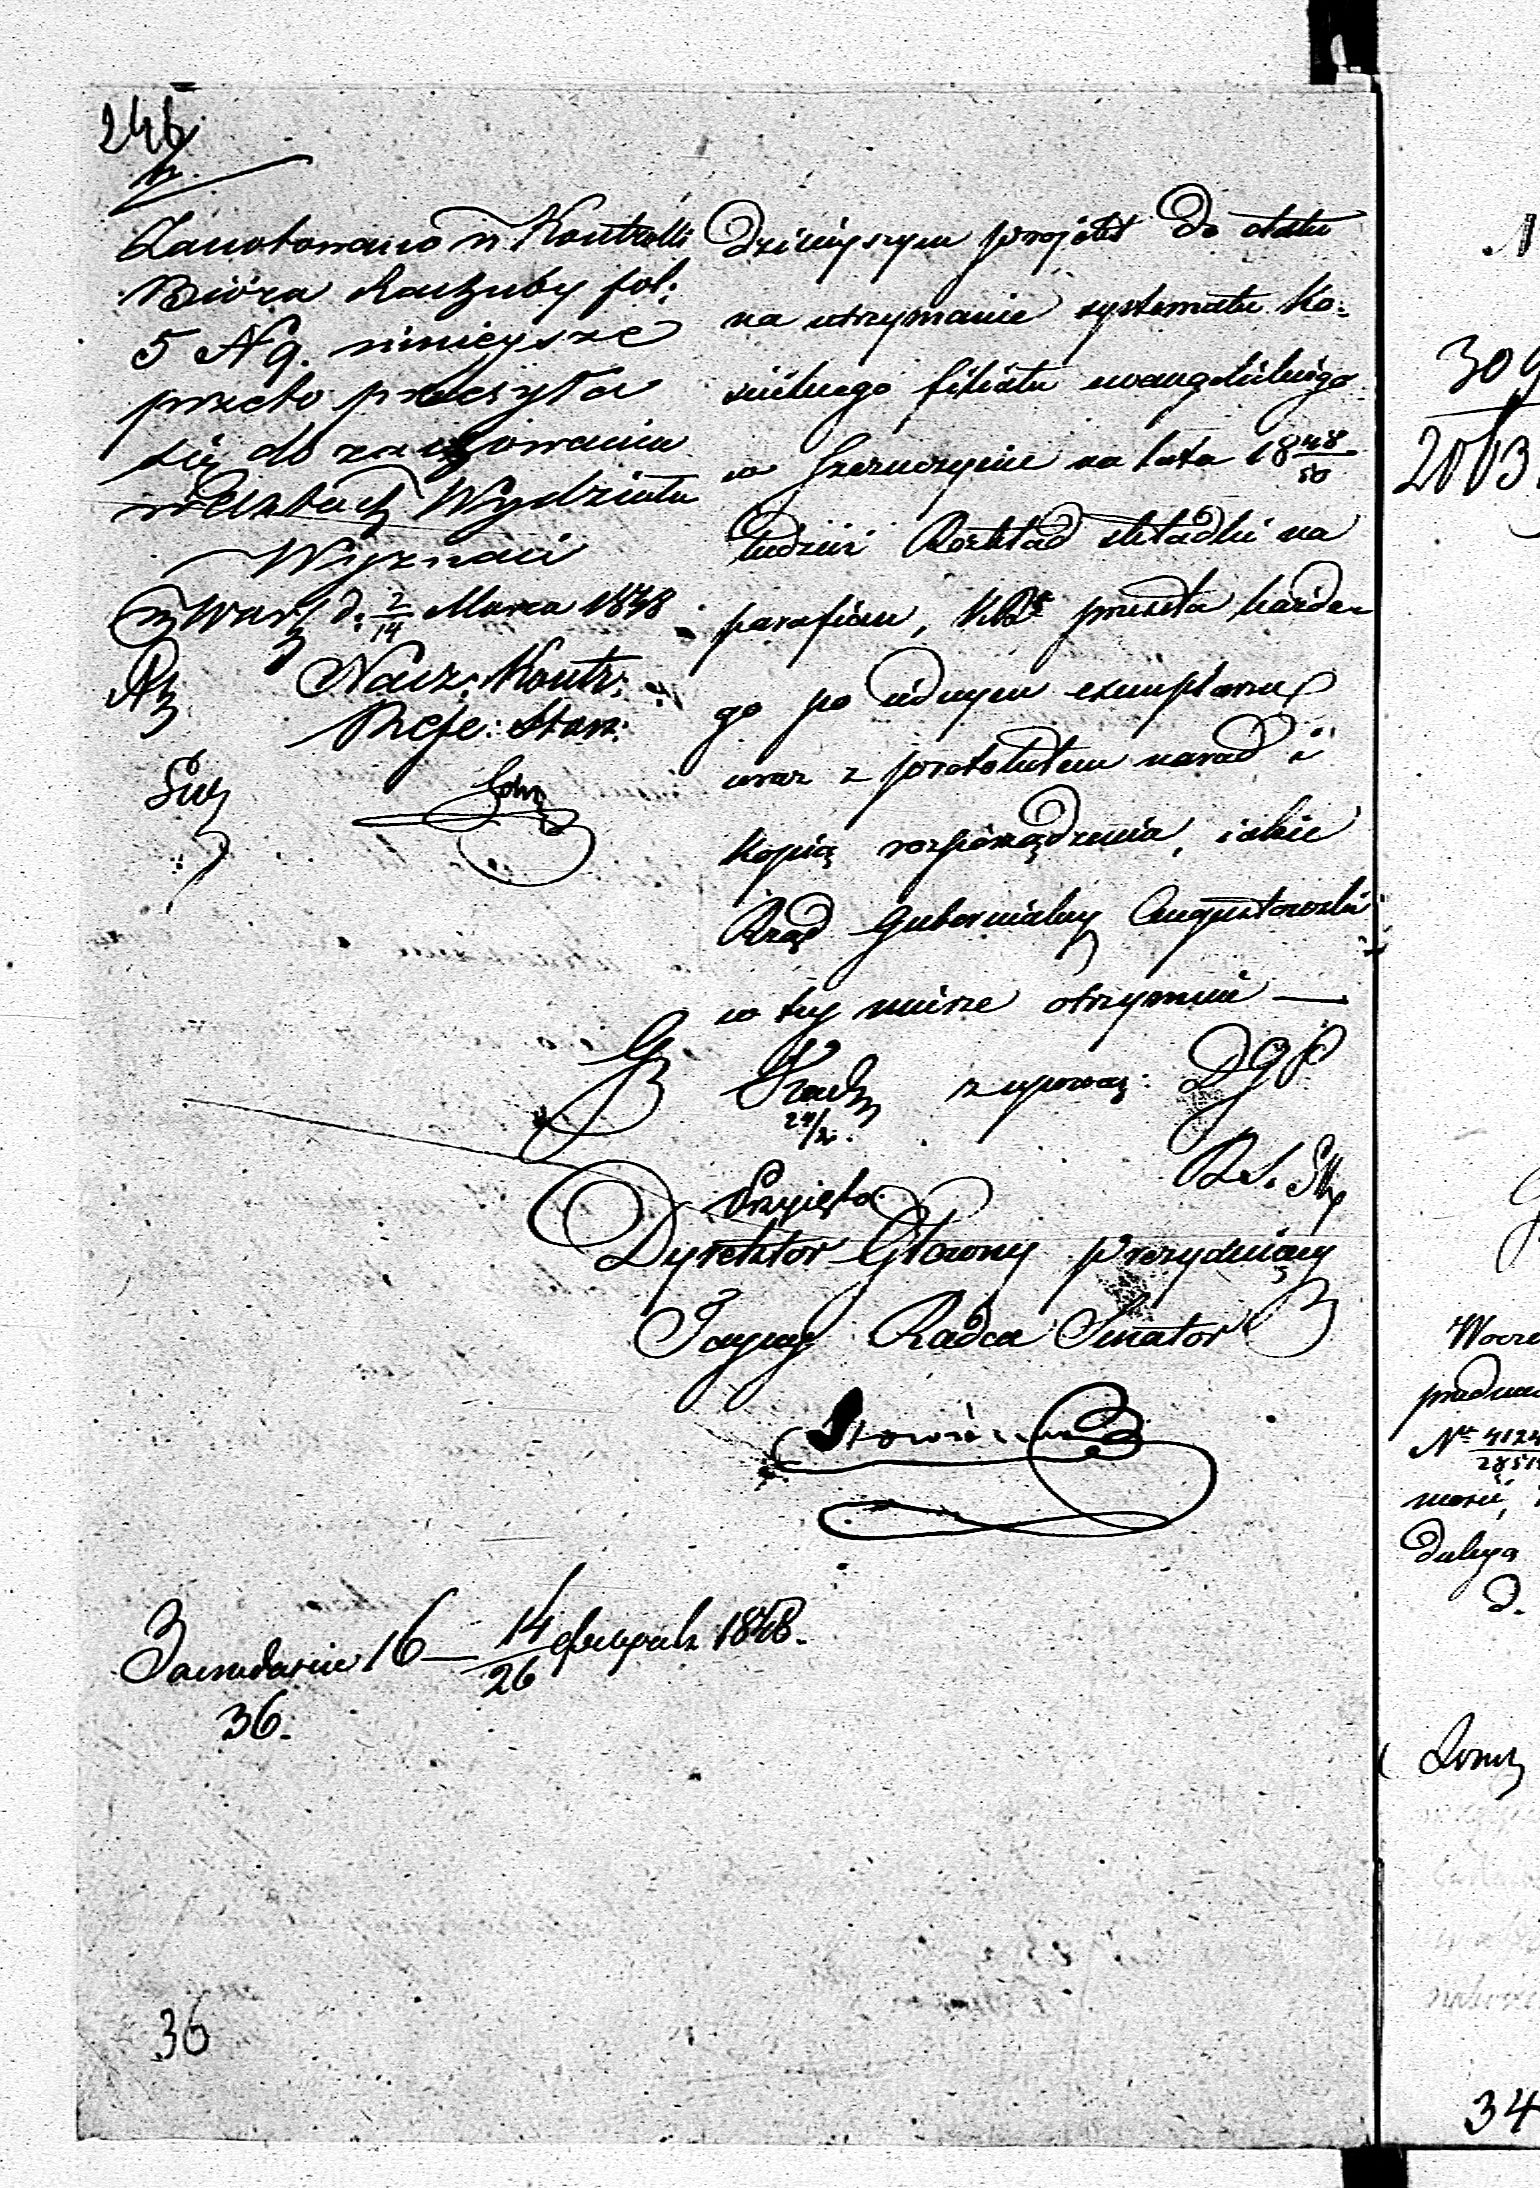 246
Zanotowano w Kontrolli
Bióra Rachuby fol:
5 N 9. niniejsze
przeto przesyła
się do zachowania
w Aktach Wydziału
Wyznań
w War: d. 2/14 Marca 1848
Nacz: Kontr:
Refe: Stan:
dzisieyszym projekt do etatu
na utrzymanie systematu Ko-
ścielnego filiału ewangelickiego
w Szczuczynie na lata 18 48/50
tudzież Rozkład składki na
parafian, przesyła każde-
go po iednym exemplarzu
wraz z protokułem narad i
kopią rozporządzenia, iakie
Rząd Gubernialny Augustowski
w tej mierze otrzymuie —
24/2.
z upoważ: D G P
R. S. St
Przyięto
Dyrektor Główny Prezyduiący
Tayny Radca Senator
Заседание 16 — 14/26 февраля 1848.
36.
36
309
2063
Wocze
N 4124
34